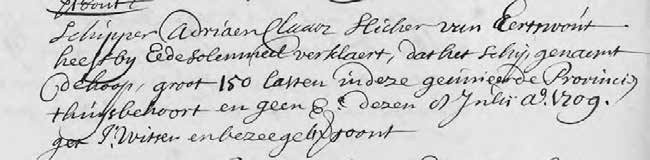 Schipper Adriaen Claasz Slicher van Eertswout
heeft by Eede solemneel verklaert, dat het schip, genaemt
de hoop, groot 150 lasten in deze geunieerde Provincie
thuijsbehoort en geen &c. dezen Julij ao. 1709.
get J. Witsen en bezeegelt